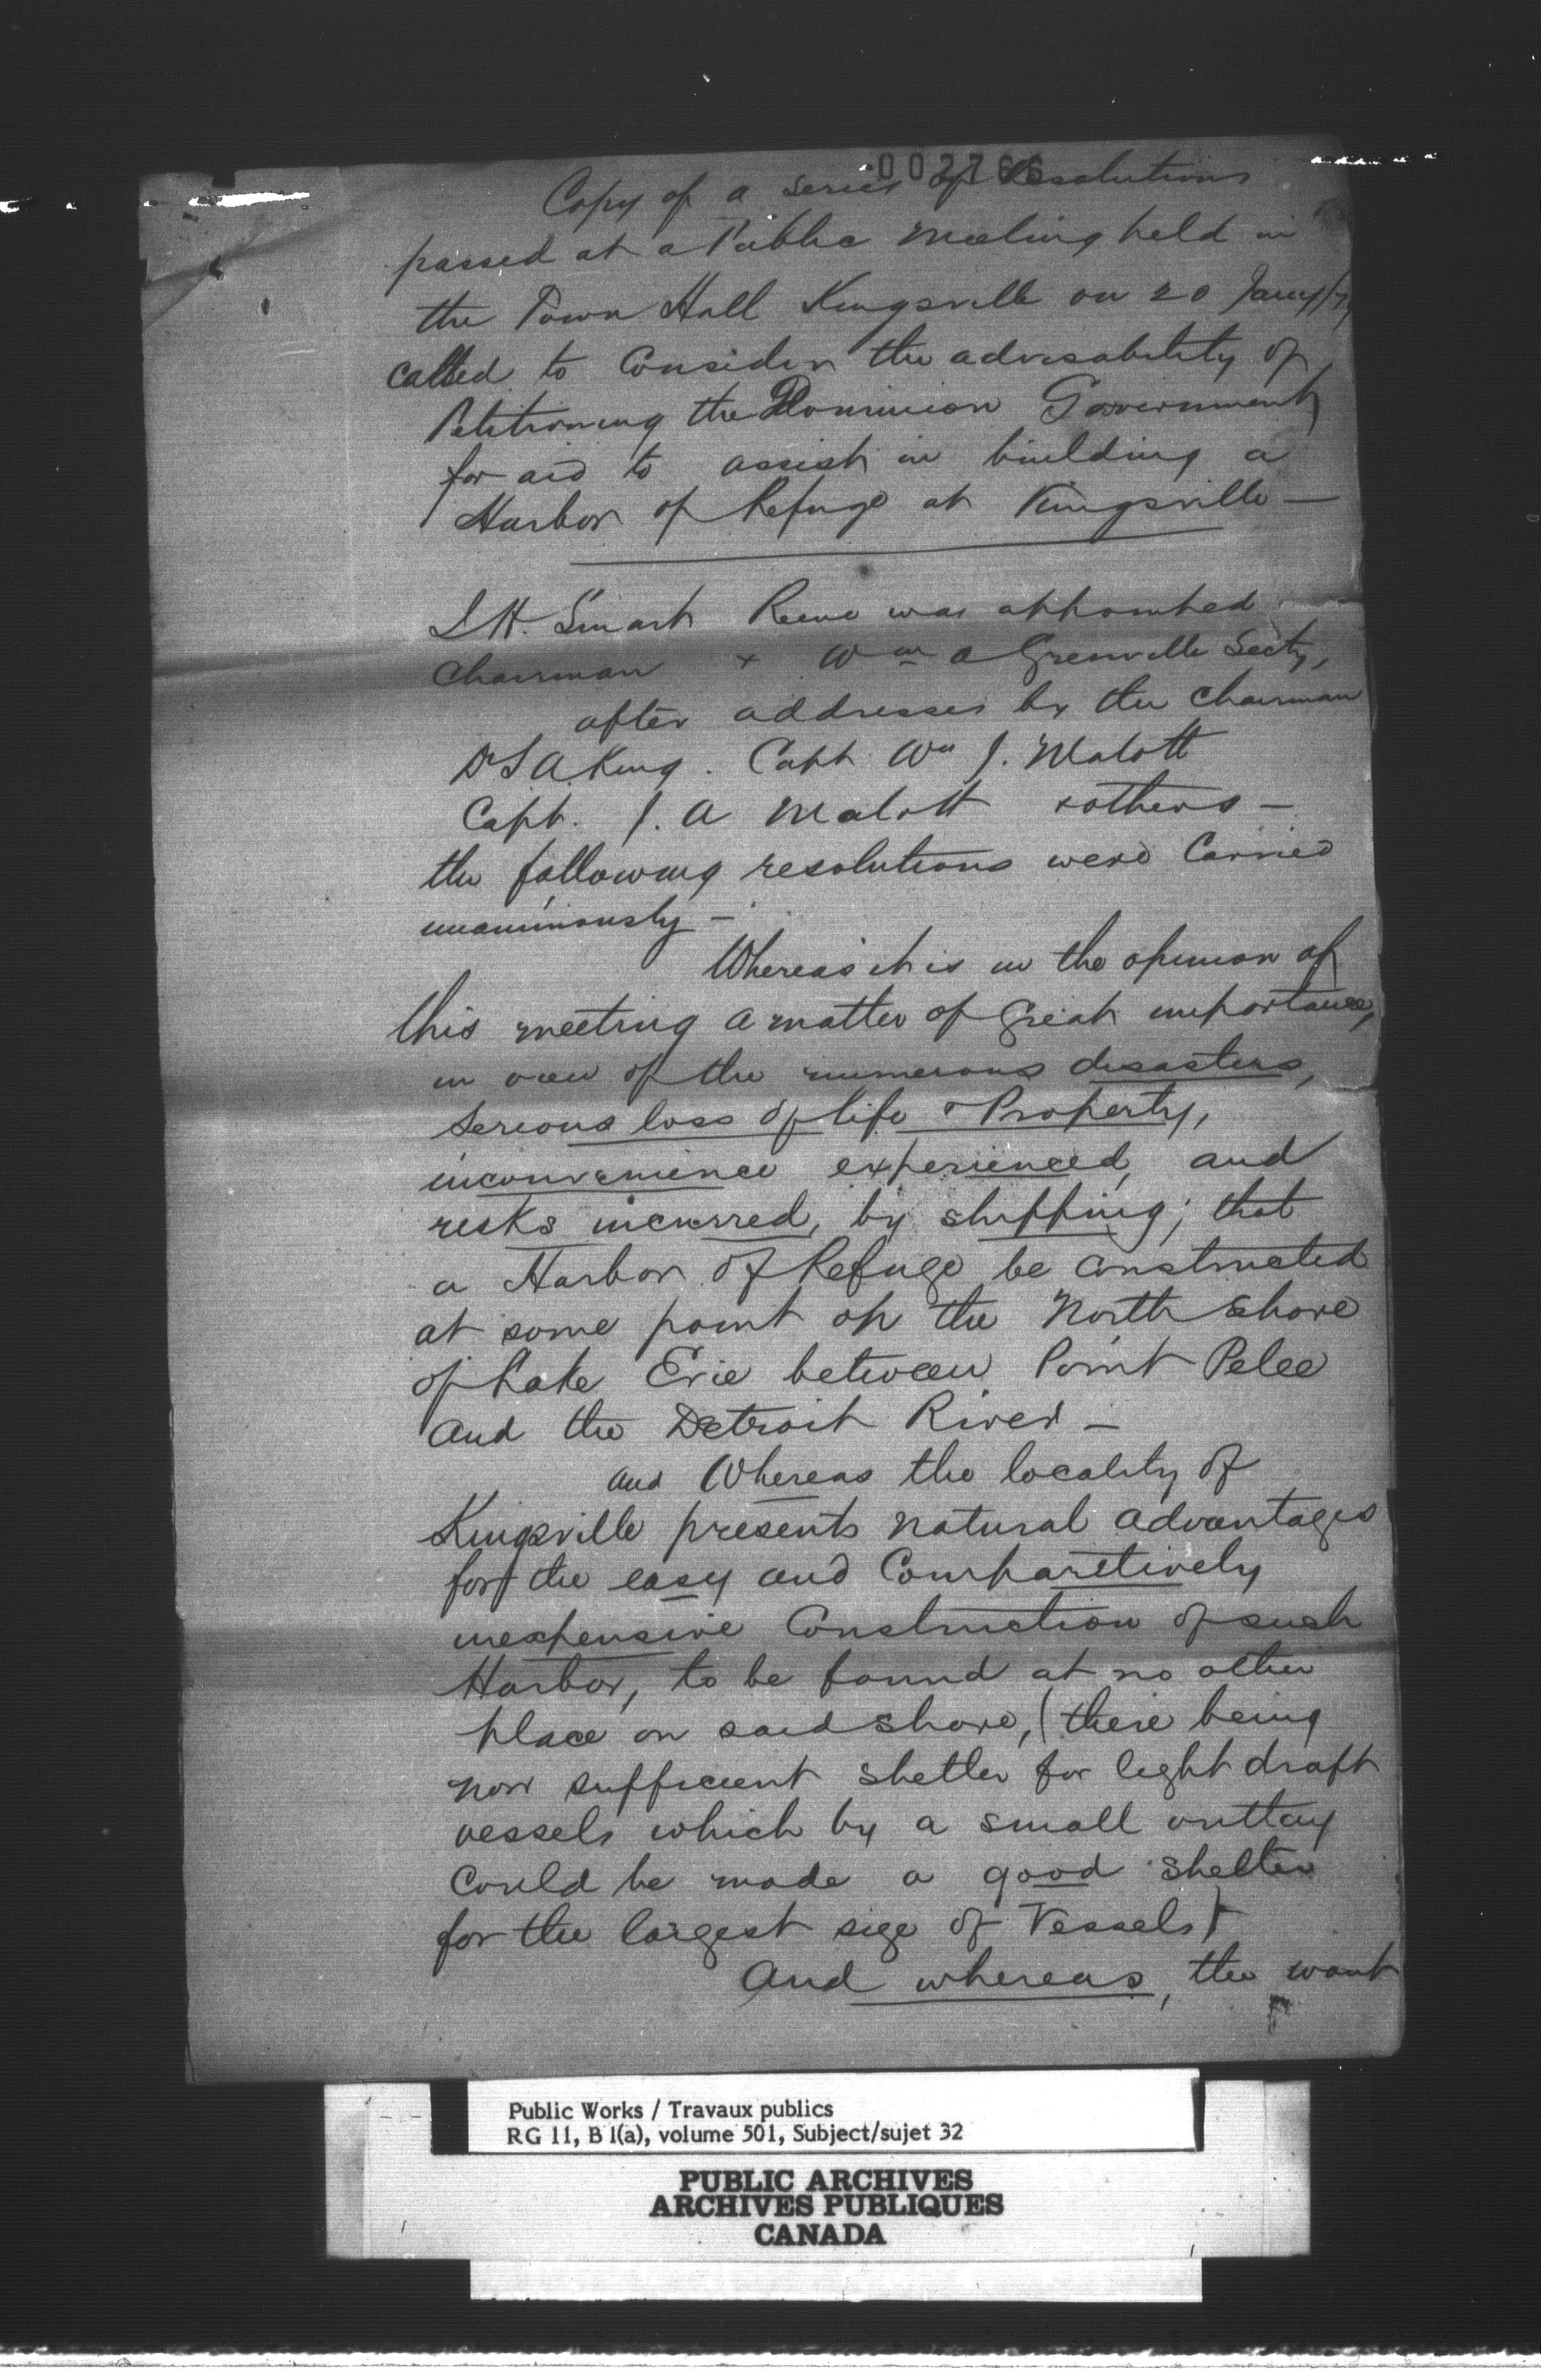 002766
Copy of a series of Resolutions
passed at a Public Meeting held in
the Town Hall Kingsville on 20 Jany
called to Consider the advisability of
Petitioning the Dominion Government
for aid to assist in building a
Harbor of Refuge at Kingsville —
H. Smart Reeve was appointed
Chairman + Wm A Grenville Secty,
after addresses by the Chairman
Dr S A King. Capt Wm J. Malott
Capt. J. A Malott + others —
the following resolutions were Carried
unanimously —
Whereas it is in the opinion of
this meeting a matter of Great importance,
in view of the numerous disasters,
Serious loss of life & Property,
inconvenience experienced, and
risks incurred, by shipping; that
a Harbor of Refuge be Constructed
at some point on the North Shore
of Lake Erie between Point Pelee
and the Detroit River —
and Whereas the locality of
Kingsville presents natural advantages
for the easy and Comparetively
inexpensive Construction of such
Harbor, to be found at no other
place on said shore, (there being
now sufficient shelter for light draft
vessels which by a small outlay
Could be made a good shelter
for the largest size of Vessels)
And whereas, the want
Public Works / Travaux publics
RG 11, B 1(a), volume 501, Subject/sujet 32
PUBLIC ARCHIVES
ARCHIVES PUBLIQUES
CANADA